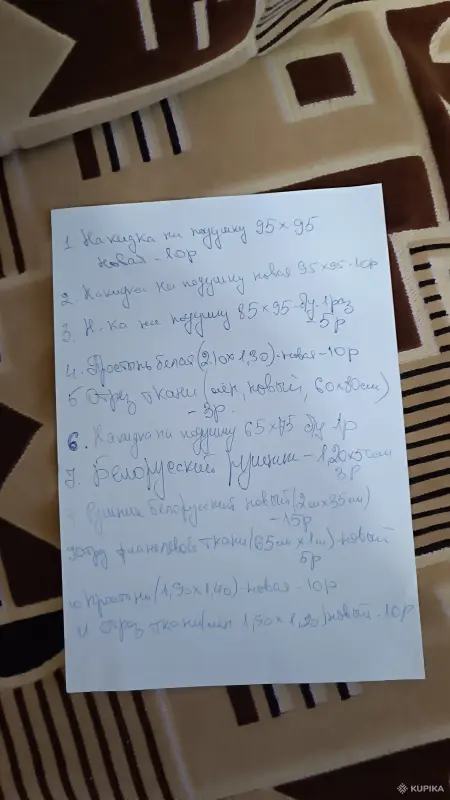 1. Накидка на подушку 95×95
новая - 10р
2. Накидка на подушку новая 95×95-10р
3. Н-ка на подушку 85×95-бу 1 раз
- 5р
4. Простынь белая (2,10×1,50)-новая-10р
5 Отрез ткани (лён, новый, 60×80см)
- 3р.
6. Накидка на подушку 65×75 бу 1р
7. Белорусский рушник - 1,20×50см
3р
Рушник белорусский новый (2м×35см)
- 15р
фланелевой ткани (65см×1м)-новый
5р
10 Простынь (1,90×1,40)-новая-10р
11 Отрез ткани (лён 1,50×1,20) новый-10р
KUPIKA